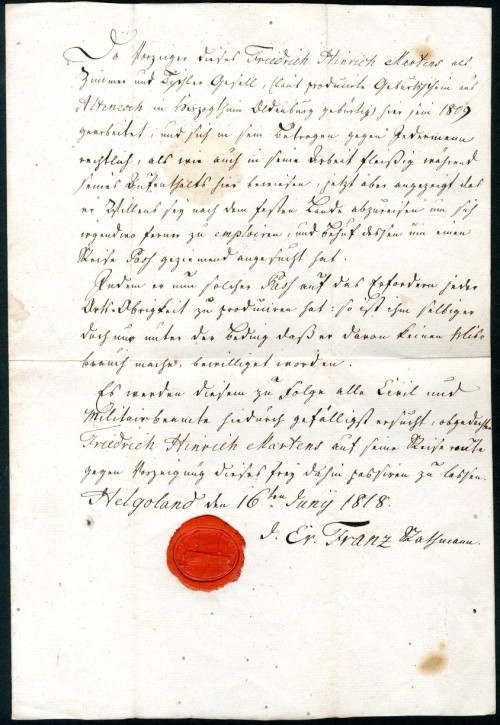 Da Vorzeiger dieses Friedrich Hinrich Martens als
Zimmer und Tischler Gesell, (laut producirte Geburtsschein aus
Altenesch im Herzogthum Oldenburg gebürtig) hier sein 1809
gearbeitet, und sich in sein Betragen gegen Jedermann
rechtlich, als wie auch in seine Arbeit fleißig während
seines Aufenthalts hier bewiesen, jetzt aber angezeigt das
er Willens sey nach dem festen Lande abzureisen um sich
irgendwo ferner zu emploiren, und behuf dessen um einen
Reise Pass geziemend angesucht hat.
Indem er nun solchen Pass auf das Erfordern jeder
Orts-Obrigkeit zu produciren hat: so ist ihm selbiger
doch nur unter der Beding daß er davon keinen Miß-
brauch mache, bewilliget worden.
Es werden diesem zu Folge alle Civil und
Militairbeamte hiedurch gefälligst ersucht, obgedachten
Friedrich Hinrich Martens auf seine Reise route
gegen Vorzeigung dieses frey dahin passiren zu lassen.
Helgoland den 16ten Junij 1818.
Er. Franz Rathmann.